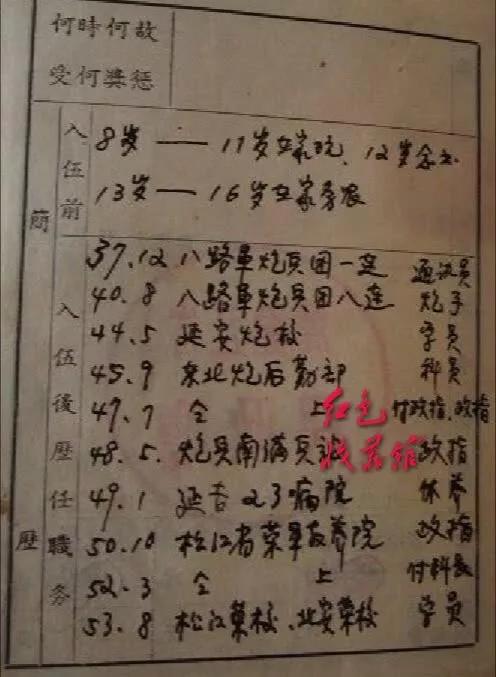 何時何故
受何獎惩
簡歷
入伍前
8岁——11岁在家玩、12岁念书
13岁——16岁在家务农
入伍後歷任職务
37.12 八路軍炮兵团一连 通讯员
40.8 八路軍炮兵团八连 炮手
44.5 延安炮校 学员
45.9 东北炮后勤部 科员
47.7 仝 上 付政指、政指
48.5. 炮兵南满兵站 政指
49.1 延吉23病院 休养
50.10 松江省荣军教养院 政指
52.3 仝 上 付科长
53.8 松江荣校、北安荣校 学员
红色
收藏馆